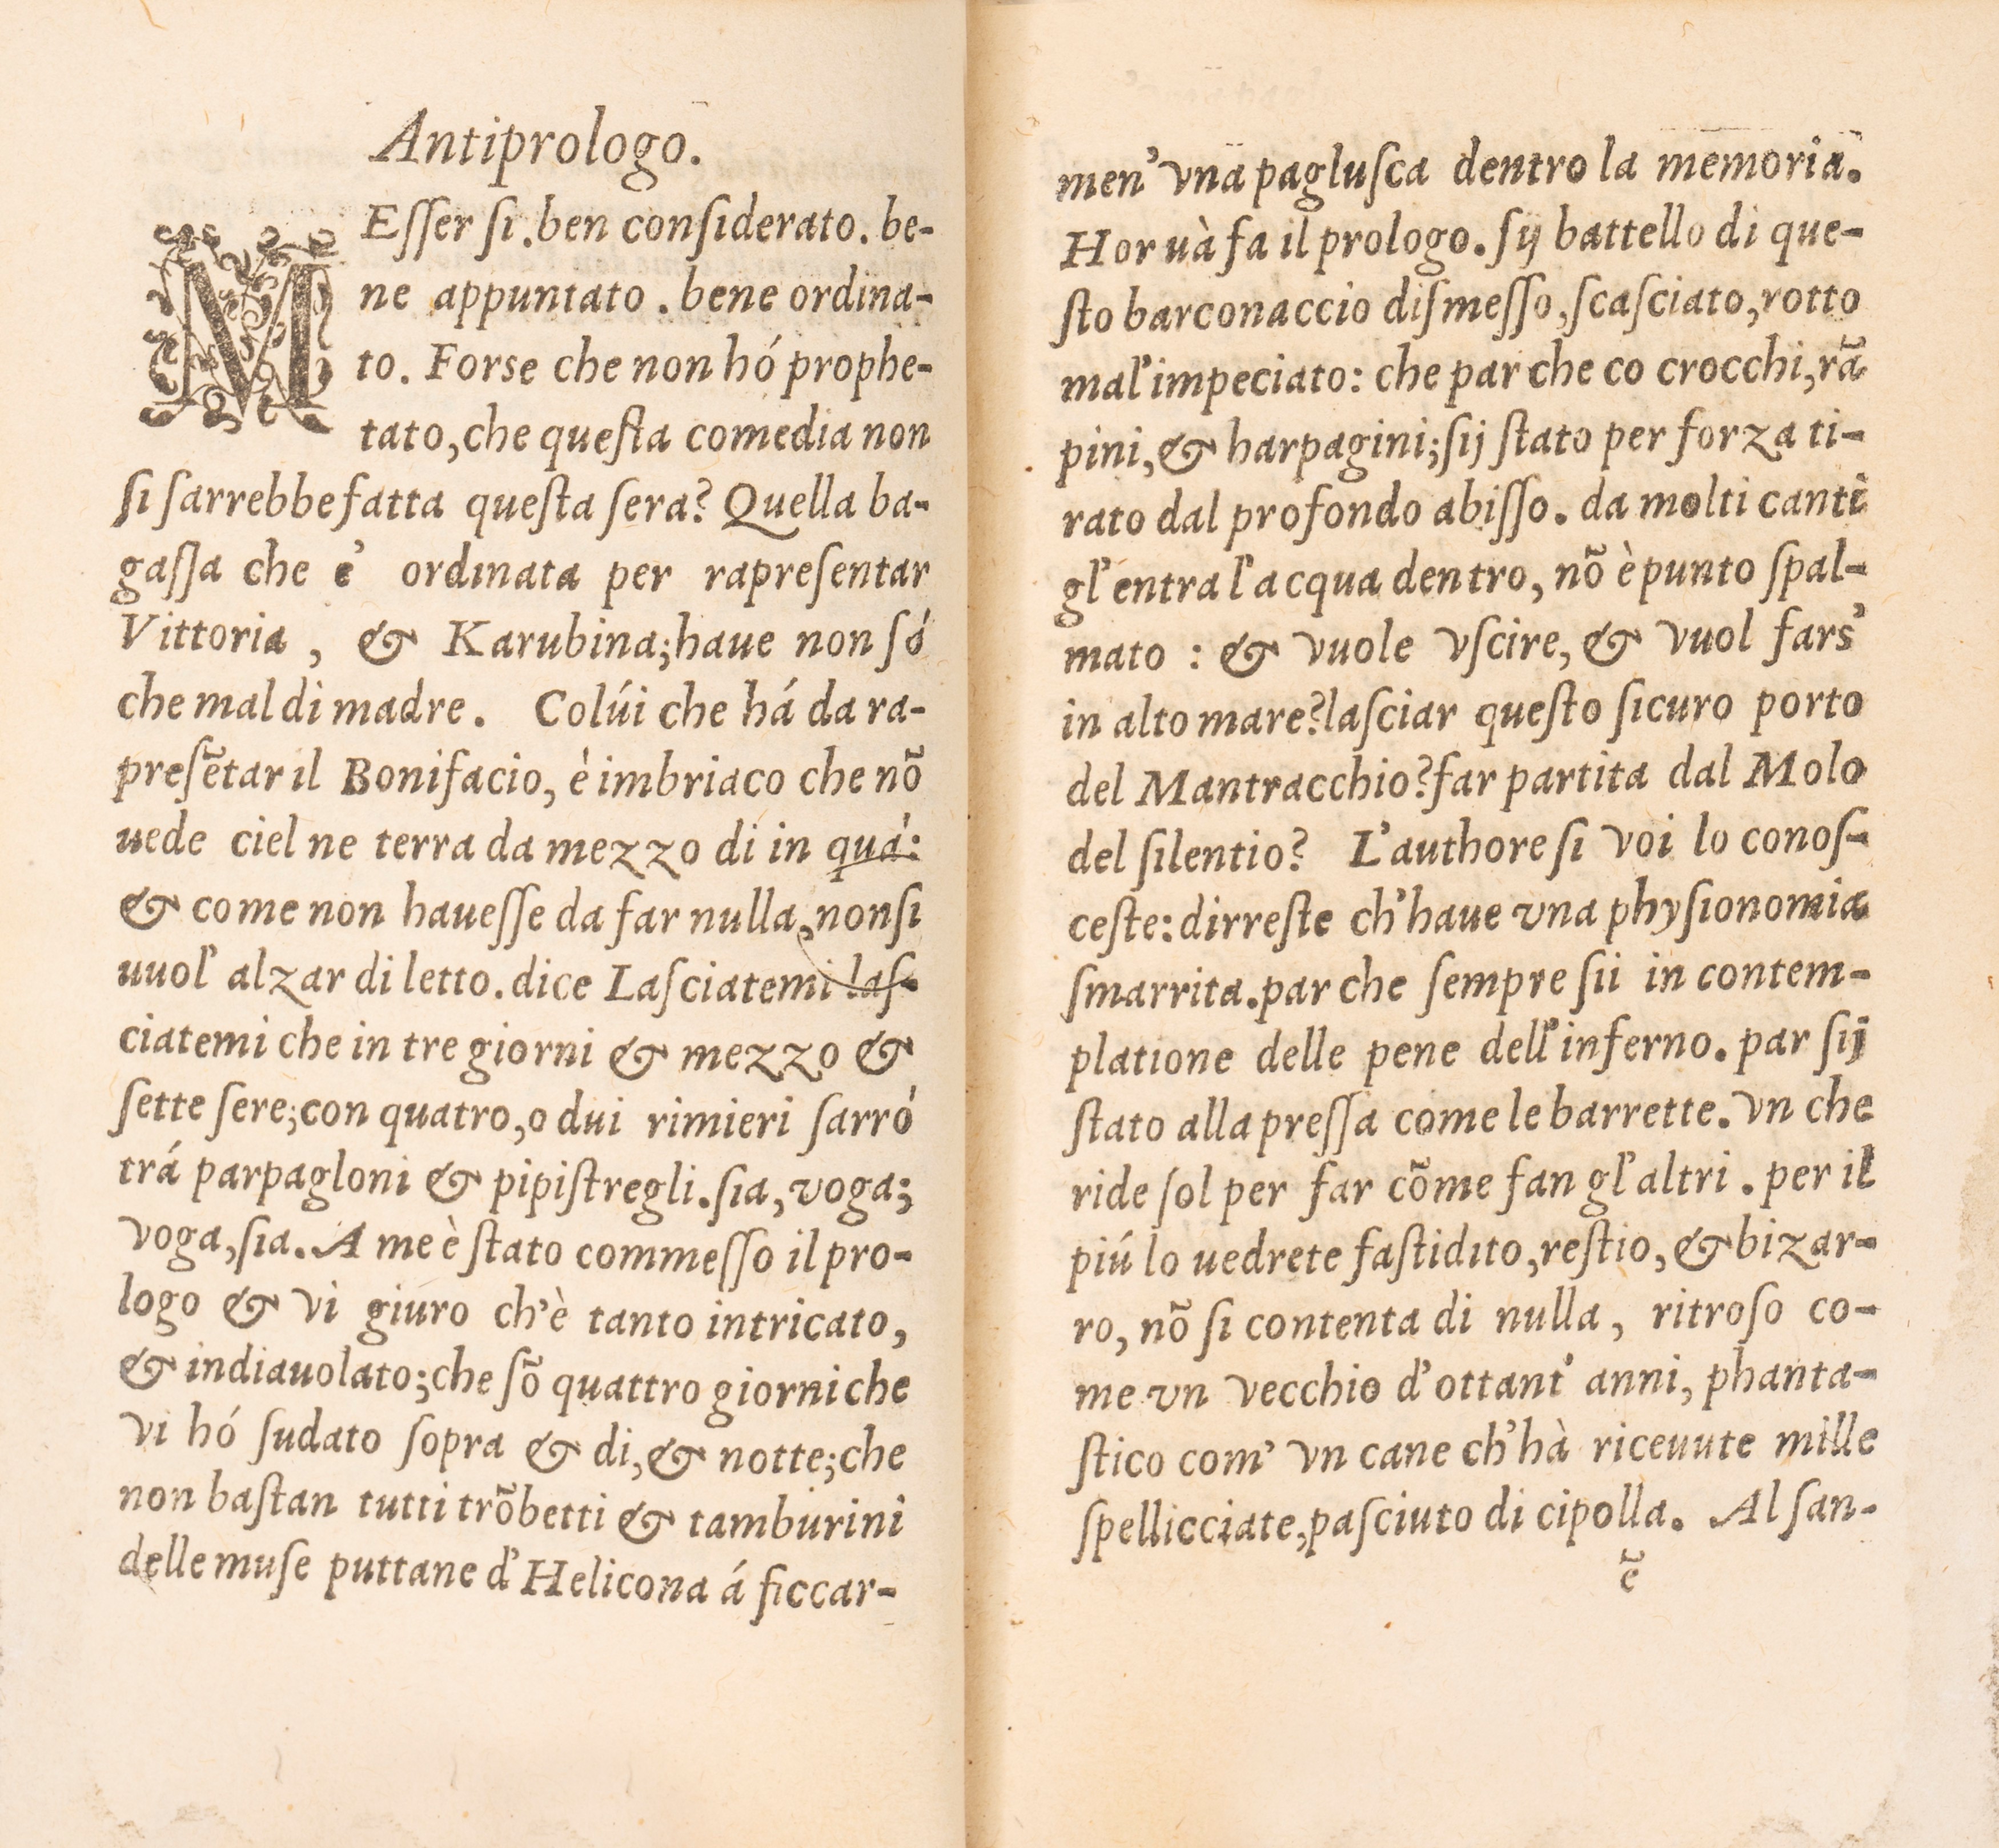 Antiprologo.
MEſſer ſi.ben conſiderato. be-
ne appuntato . bene ordina-
to. Forse che non hó prophe-
tato,che queſta comedia non
ſi ſarrebbe fatta queſta ſera? Quella ba-
gaſſa che e' ordinata per rapreſentar
Vittoria , & Karubina;haue non ſó
che mal di madre. Colúi che há da ra-
preſẽtar il Bonifacio, è imbriaco che nõ
uede ciel ne terra da mezzo di in quá:
& come non haueſſe da far nulla,non ſi
uuol' alzar di letto.dice Laſciatemi laſ-
ciatemi che in tre giorni & mezzo &
ſette ſere;con quatro,o dui rimieri ſarró
trá parpagloni & pipiſtregli.ſia,voga;
voga,ſia. A me è ſtato commeſſo il pro-
logo & vi giuro ch'è tanto intricato,
& indiauolato;che ſõ quattro giorni che
vi hó ſudato ſopra & di,& notte;che
non baſtan tutti trõbetti & tamburini
delle muſe puttane d'Helicona á ficcar-
men' vna pagluſca dentro la memoria.
Hor uà fa il prologo. ſij battello di que-
ſto barconaccio diſmeſſo,ſcaſciato,rotto
mal'impeciato: che par che co crocchi,rã
pini,& harpagini;ſij ſtato per forza ti-
rato dal profondo abiſſo. da molti canti
gl'entra l'acqua dentro, nõ è punto ſpal-
mato : & vuole vſcire, & vuol fars'
in alto mare?laſciar queſto ſicuro porto
del Mantracchio?far partita dal Molo
del ſilentio? L'authore ſi voi lo conoſ-
ceſte:dirreſte ch'haue vna phyſionomia
ſmarrita.par che ſempre ſii in contem-
platione delle pene dell'inferno. par ſij
ſtato alla preſſa come le barrette. vn che
ride ſol per far cõme fan gl'altri . per il
piú lo uedrete faſtidito,reſtio, & bizar-
ro, nõ ſi contenta di nulla, ritroſo co-
me vn vecchio d'ottant' anni, phanta-
ſtico com' vn cane ch'hà riceuute mille
ſpellicciate,paſciuto di cipolla. Al ſan-
ẽ